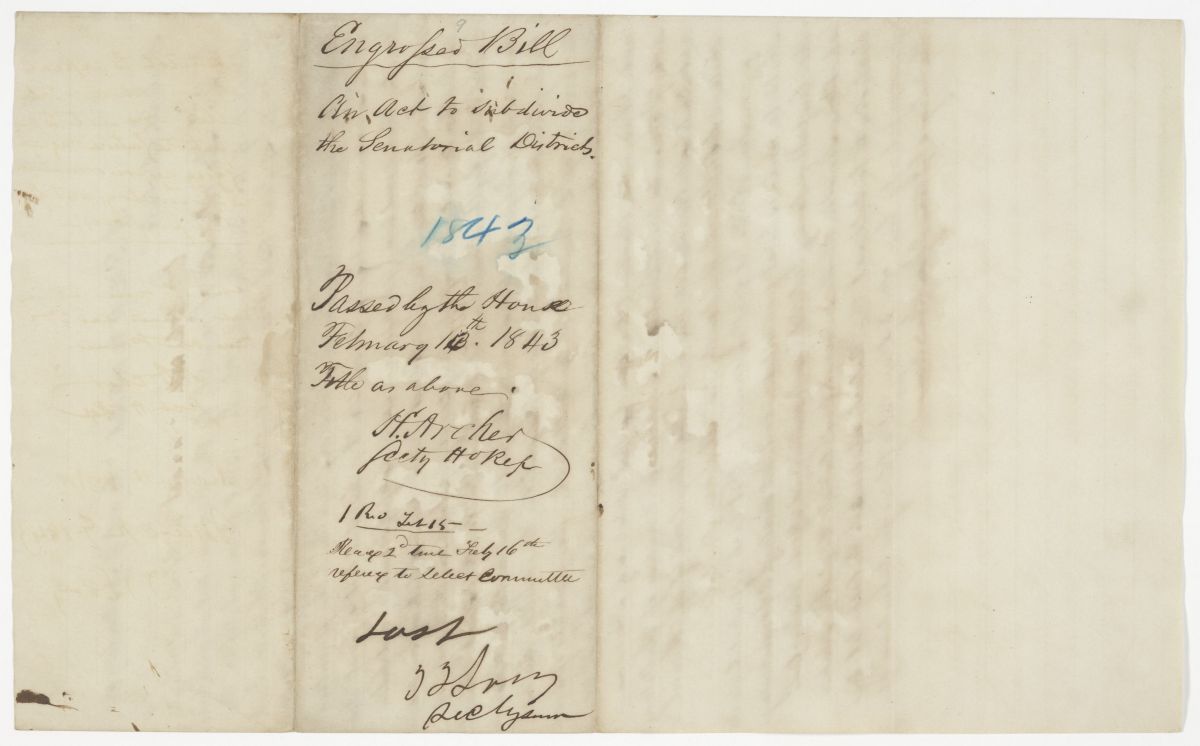 Engrossed Bill
An Act to subdivide
the Senatorial Districts.
1843
Passed by the House
February 13th. 1843
Title as above
H. Archer
Secty HoRep
1 Rea Feb 15 —
Read 2d time Feby 16th
refered to Select Committee
Lost
Secty